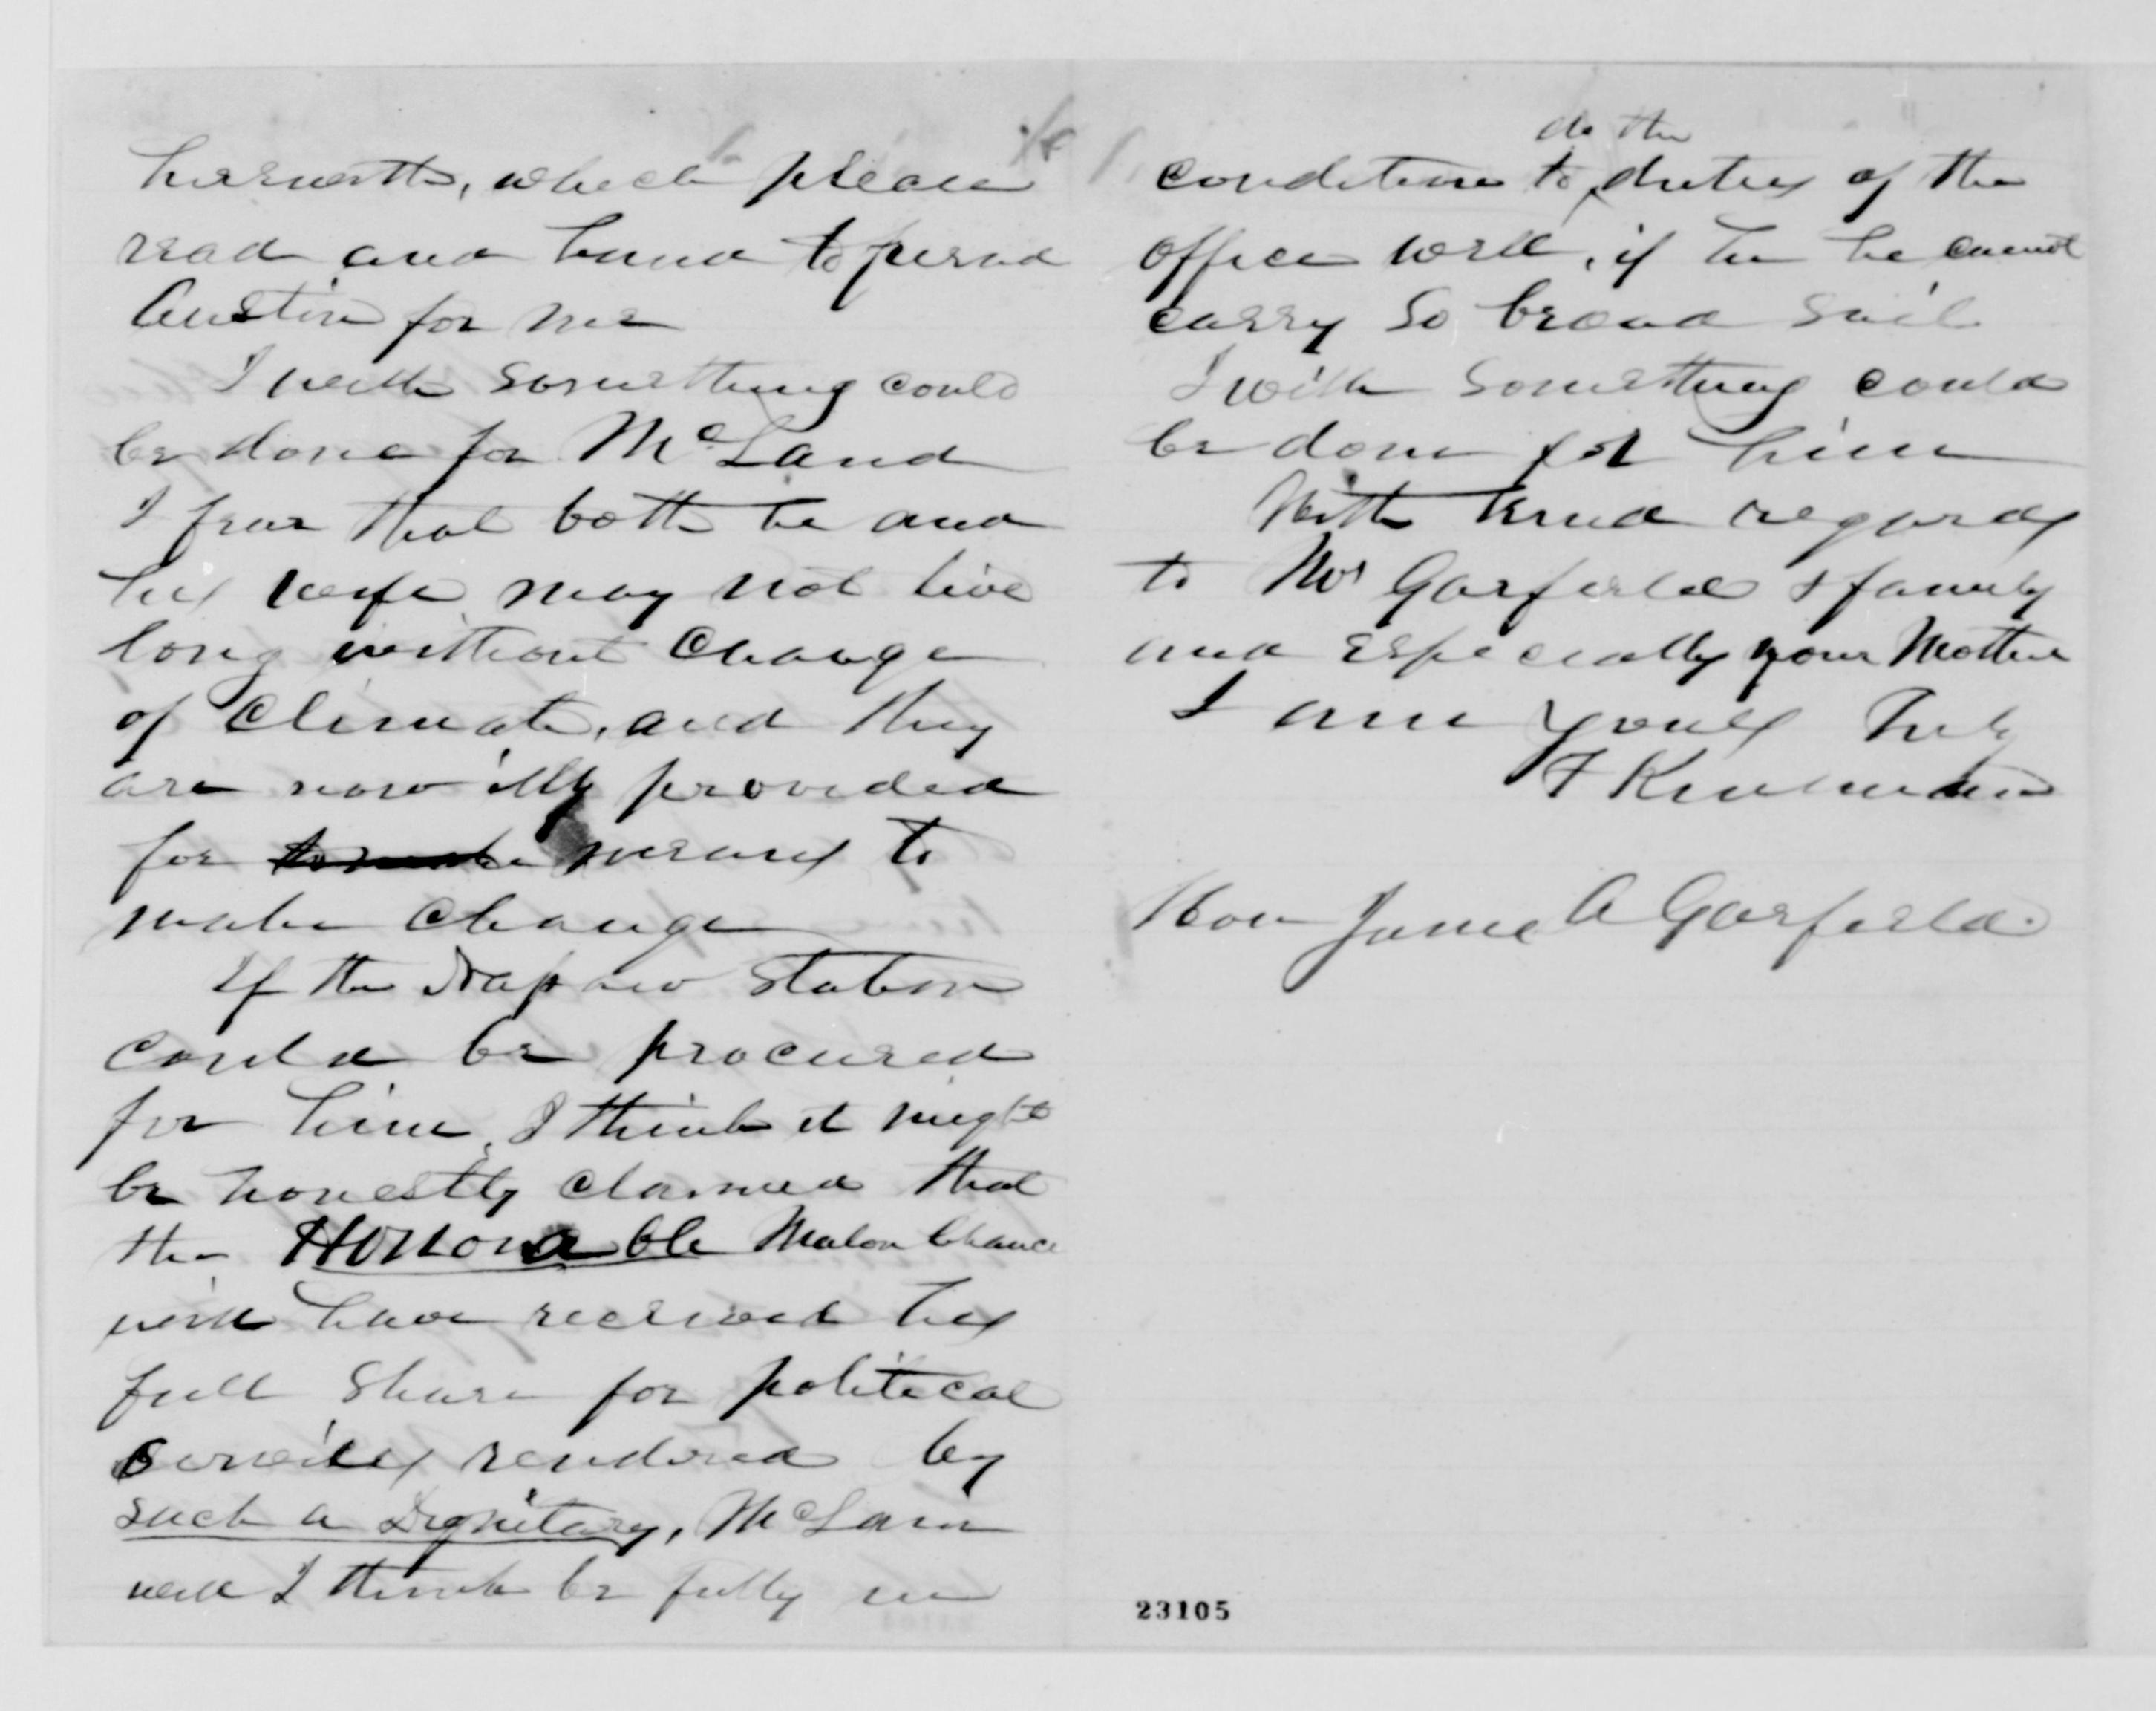 herewith, which please
read and hand to friend
Austin for me
I wish something could
be done for McLand
I fear that both he and
his wife may not live
long without change
of climate, and they
are now illy provided
for to make means to
make change
If the Nassau station
could be procured
for him, I think it might
be honestly claimed that
the Honorable Malon Chance
will have received his
full share for political
services rendered by
such a Dignitary, McLain
will I think be fully in
do the
condition to duties of the
office well, if he he cannot
carry so broad sail
I wish something could
be done for him
With kind regards
to Mrs Garfield & family
and especially your Mother
I am yours Truly
F Kinsman
Hon James A Garfield.
23105